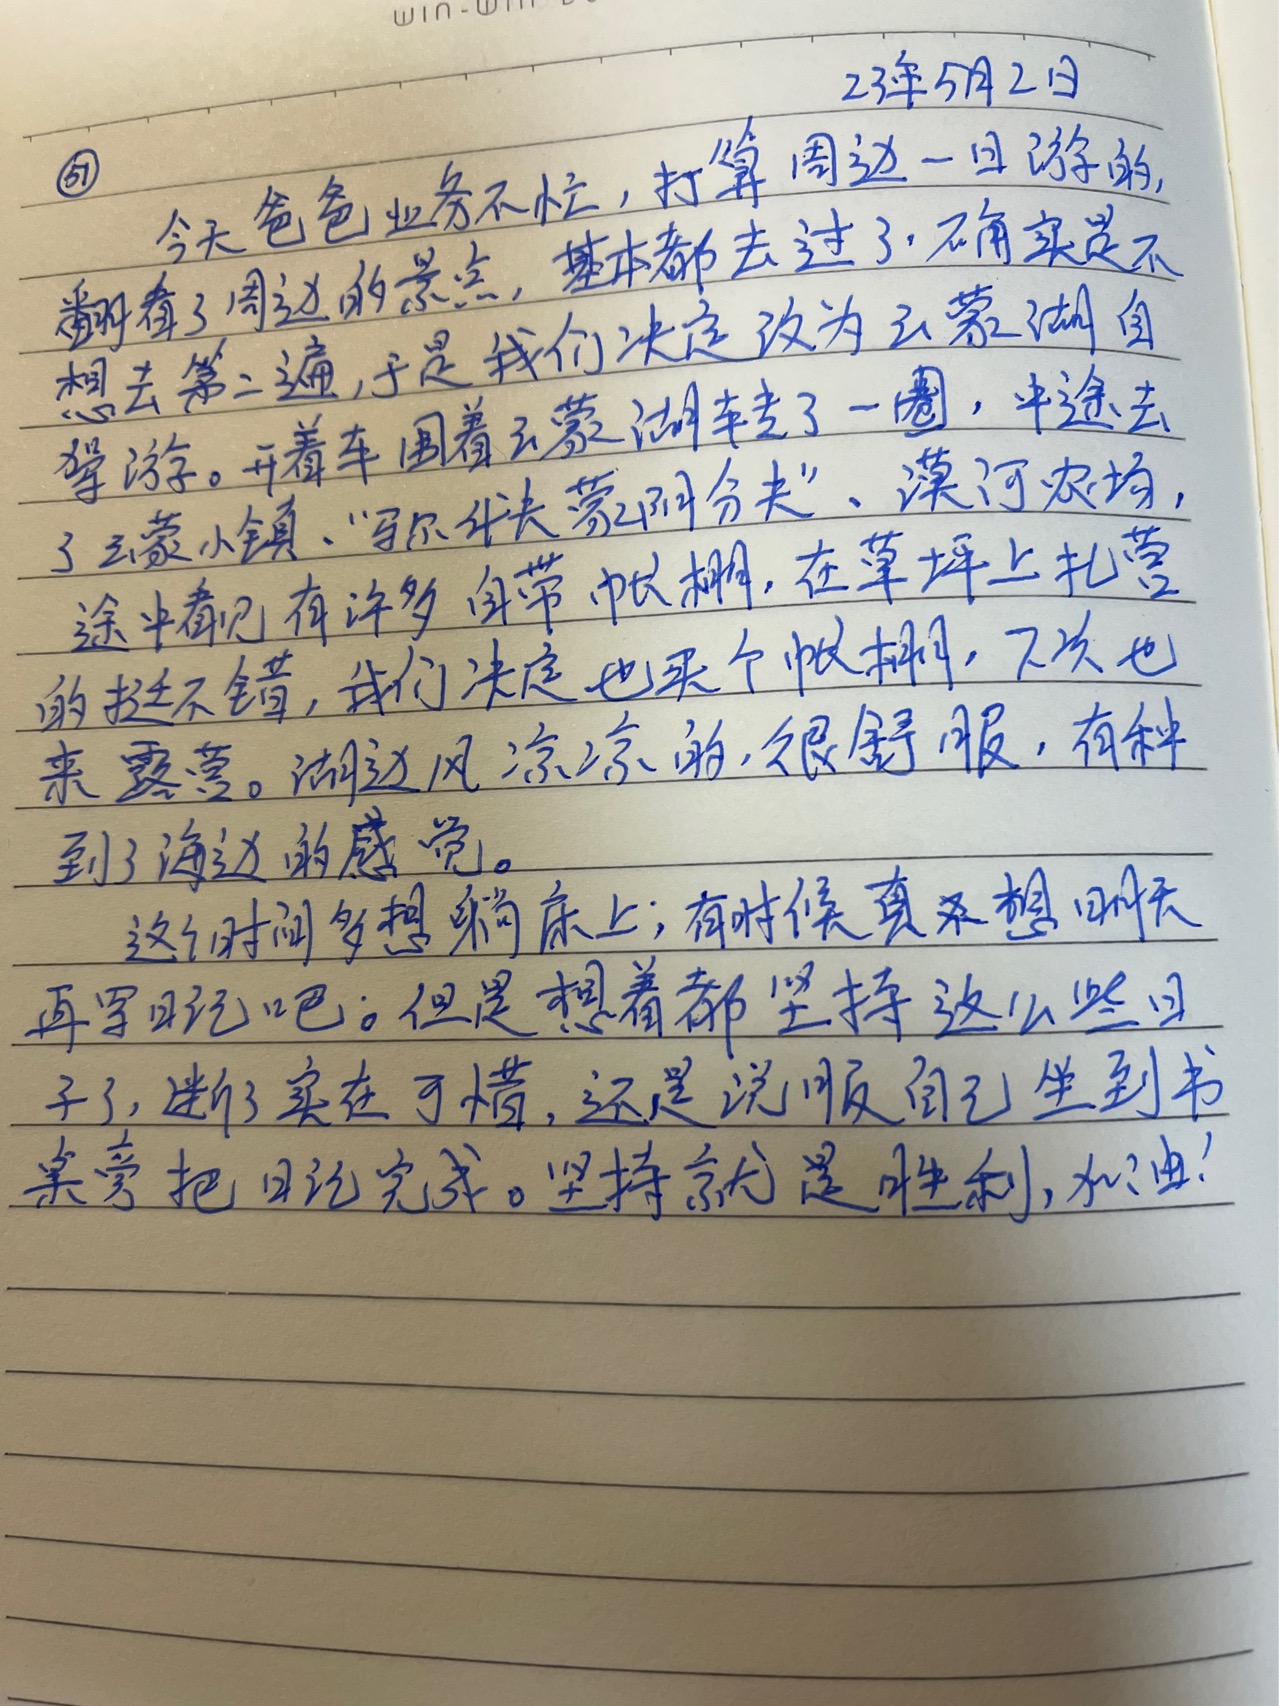 WIN-WIN
23年5月2日
今天爸爸业务不忙,打算周边一日游的,
翻看了周边的景点,基本都去过了,确实是不
想去第二遍,于是我们决定改为云蒙湖自
驾游。开着车围着云蒙湖转走了一圈,中途去
了云蒙小镇、"写尔什夫蒙阴分夫"、漠河农场,
途中看见有许多自带帐棚,在草坪上扎营
的挺不错,我们决定也买个帐棚,下次也
来露营。湖边风凉凉的,很舒服,有种
到了海边的感觉。
这个时间多想躺床上;有时候真不想明天
再写日记吧。但是想着都坚持这么些日
子了,断了实在可惜,还是说服自己坐到书
桌旁把日记完成。坚持就是胜利,加油!